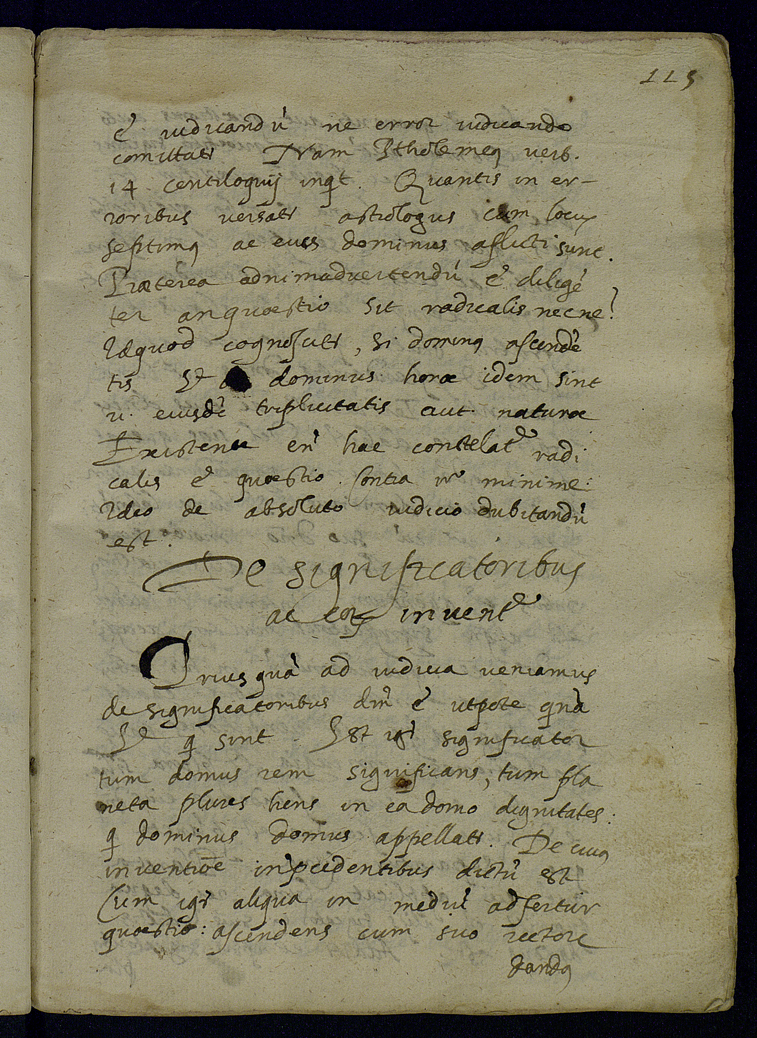 115
ẽ iudicandũ ne error iudicando
comittatr Nam Ptholemeq verb.
14 centiloquij inqt. Quantis in er-
roribus versatr astrologus cum locus
septimq ac eius dominus aflicti sunt.
Præterea adnimadvertendũ ẽ diligẽ
ter an quæstio sit radicalis necne?
Id quod cognoscitr, si dominq ascendẽ
tis et dominus horæ idem sint
v. eiusdẽ triplicitatis aut naturæ
Existente eñ hac constelate radi
calis ẽ quæstio. Contra vo minime:
Ideo de absoluto iudicio dubitandũ
est.
De significatoribus
ac eoꝝ invente
Priusquã ad iudicia veniamus
de significatoribus dm̃ ẽ utpote qnã
et q sint. Est igr significator
tum domus rem significans, tum pla
neta plures hẽns in ea domo dignitates:
q dominus domus appellatr. De cuiq
inventiõe in p̃cedentibus dictũ est
Cum igr aliqua in mediũ adfertur
quæstio: ascendens cum suo rectore
dandq